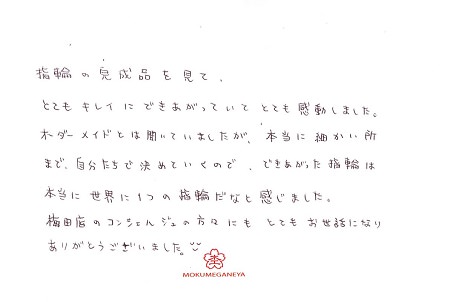 指輪の完成品を見て、
とてもキレイにできあがっていてとても感動しました。
オーダーメイドとは聞いていましたが、本当に細かい所
まで、自分たちで決めていくので、できあがった指輪は
本当に世界に1つの指輪だなと感じました。
梅田店のコンシェルジュの方々にもとてもお世話になり
ありがとうございました。
MOKUMEGANEYA